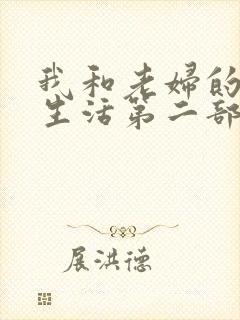 我和老妇的
生活第二部
展洪德